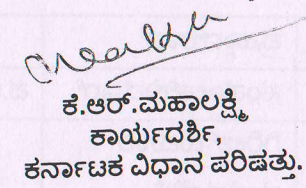 ಕೆ.ಆರ್.ಮಹಾಲಕ್ಷ್ಮಿ
ಕಾರ್ಯದರ್ಶಿ,
ಕರ್ನಾಟಕ ವಿಧಾನ ಪರಿಷತ್ತು.